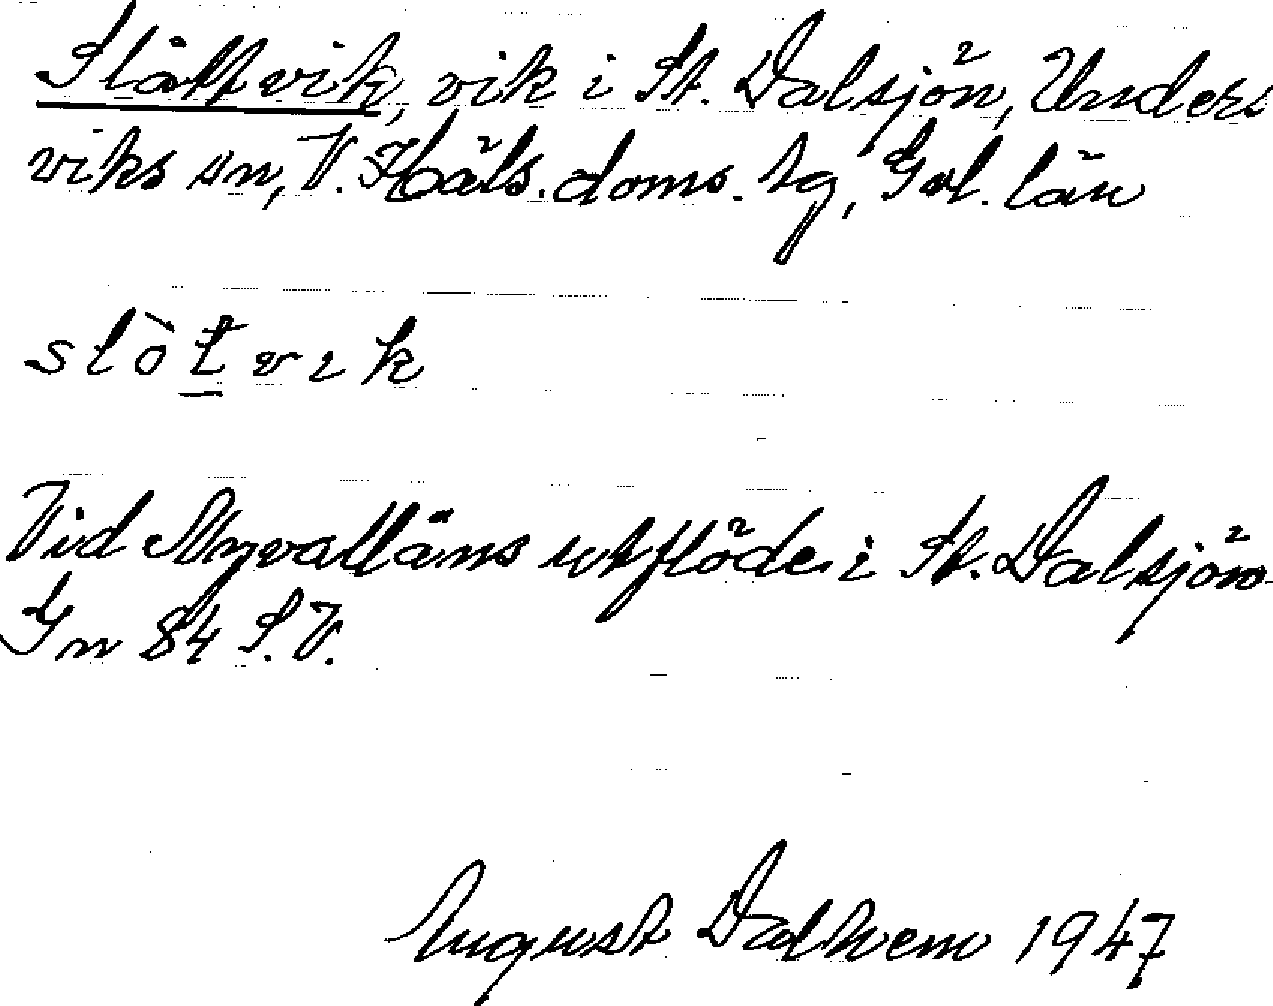 Slåttvik, vik i St. Dalsjön, Unders
viks sn, V. Häls. doms. tg, Gvl. län
slòt vik
Vid Myvallåns utflöde i St. Dalsjön
Gn 84 S.V.
August Dalhem 1947